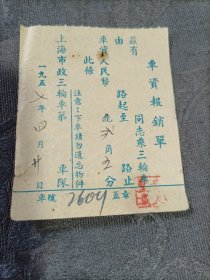 車資報銷單
茲有 同志乘三輪車
由 路起至 路止
車資人民幣 貳角五分
此條
注意：下車請勿遺忘物件
上海市政三輪車第 車隊
一九五 年四月廿日 車號 7604 蓋章